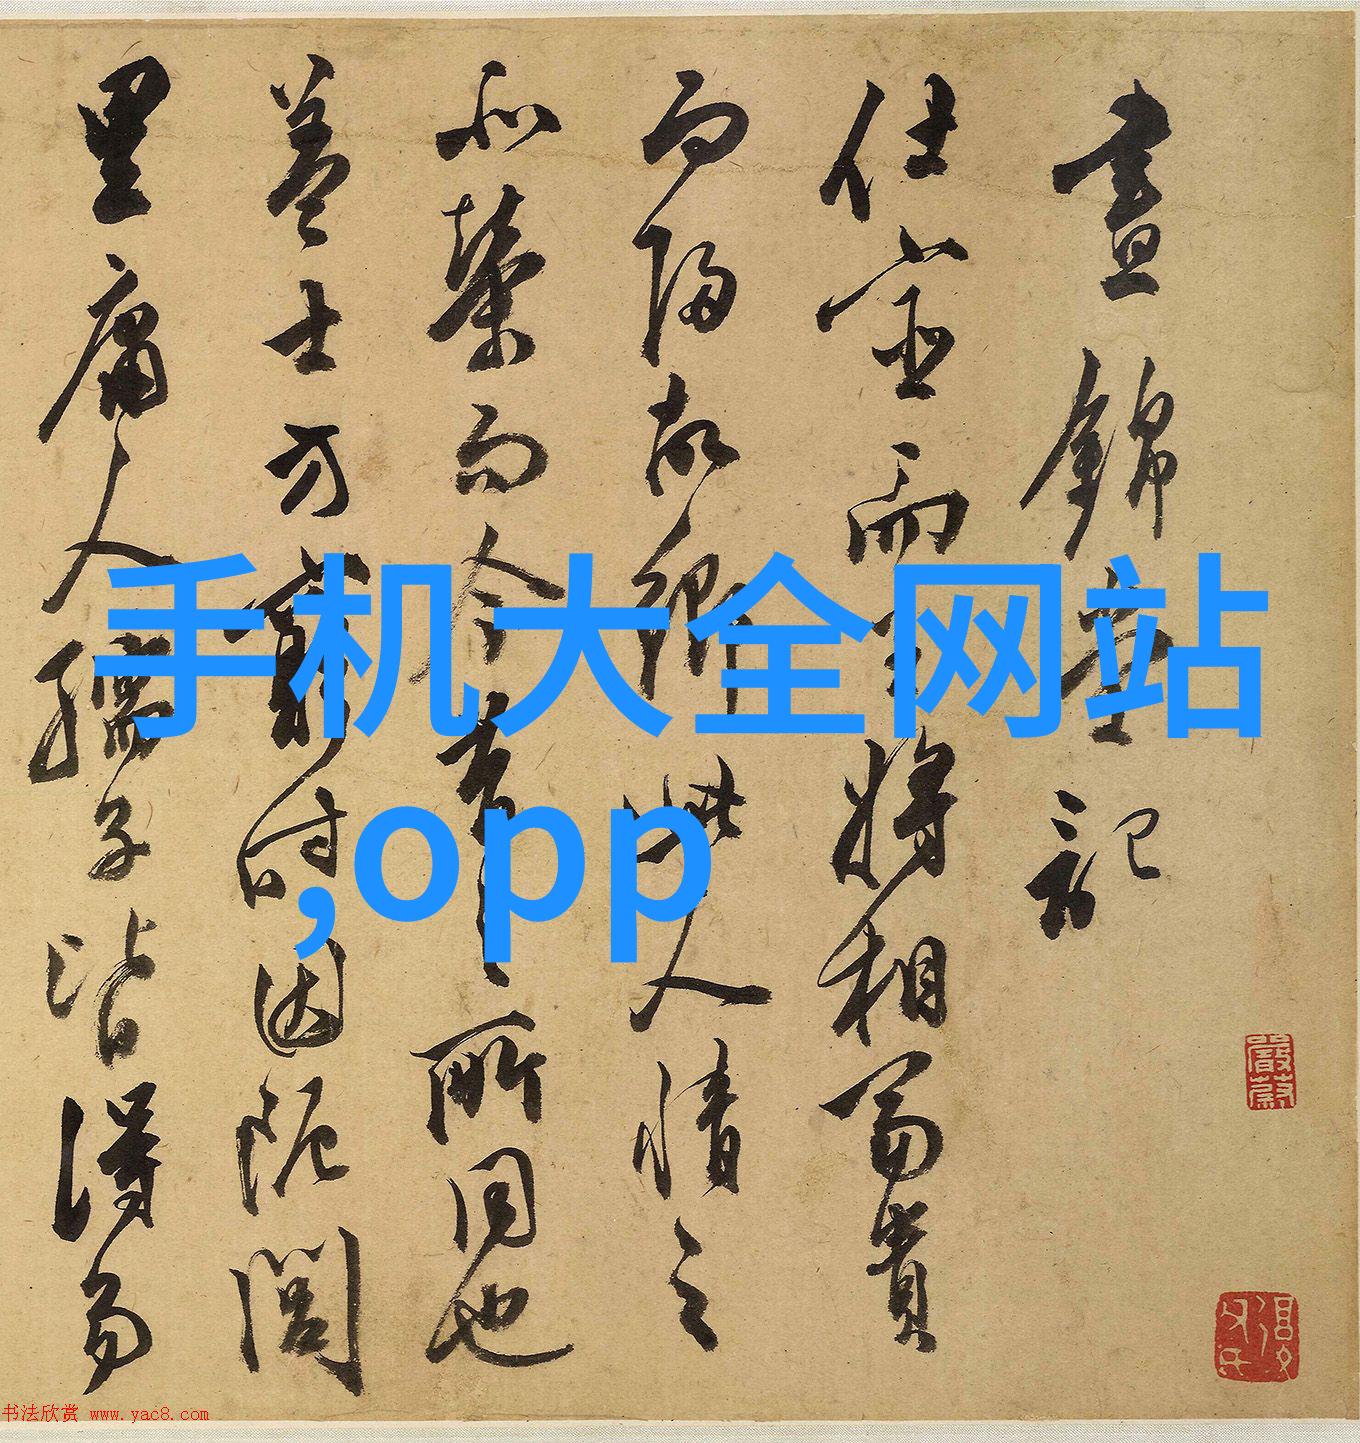 晝錦堂記
仕宦而至將相富貴
而歸故鄉此人情之
所榮而今昔之所同也
蓋士方窮時困阨閭
里庸人孺子皆得易
手机大全网站
,opp
书法欣赏 www.yac8.com